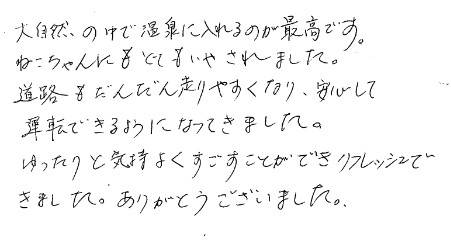 大自然、の中で温泉に入れるのが最高です。
ねこちゃんにもとてもいやされました。
道路もだんだん走りやすくなり、安心して
運転できるようになってきました。
ゆったりと気持よくすごすことができリフレッシュで
きました。ありがとうございました。